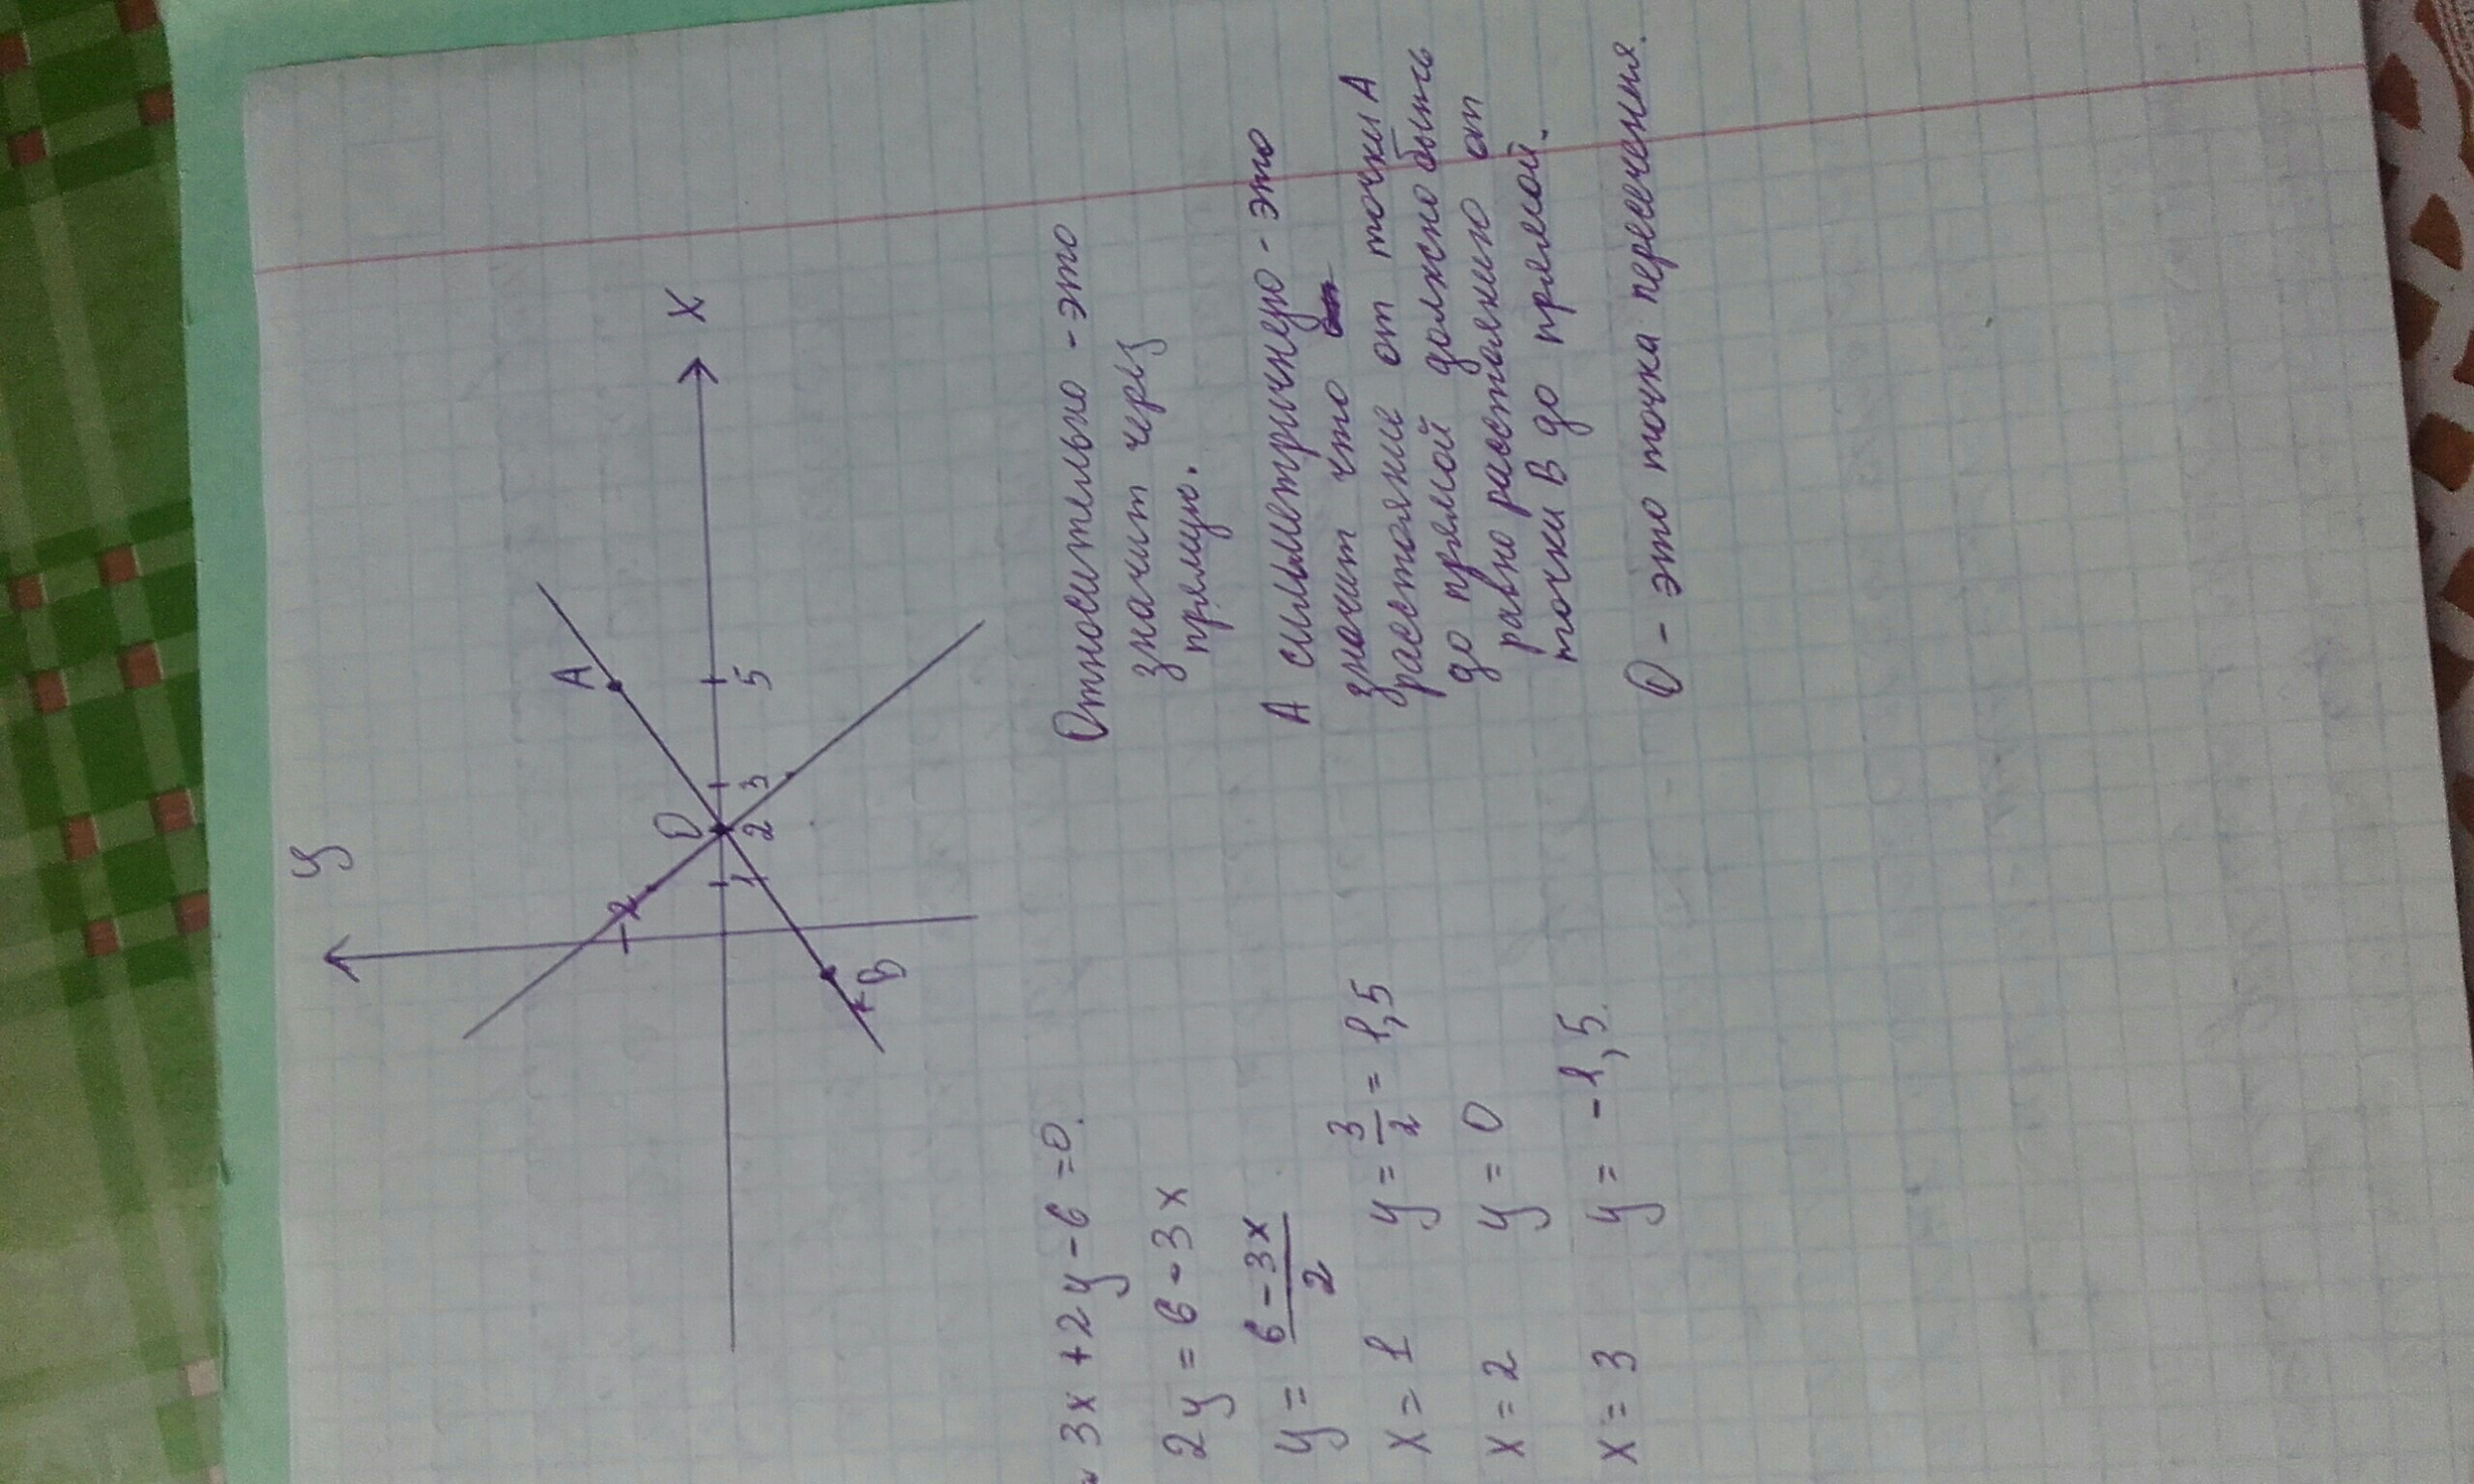 y
x
A
O
2
1
2
3
5
B
3x + 2y - 6 = 0.
2y = 6 - 3x
y = 6 - 3x / 2
x = 1 y = 3/2 = 1,5
x = 2 y = 0
x = 3 y = -1,5.
Относительно - это
значит через
прямую.
А симметричную - это
значит что от
растояние от точки А
до прямой должно быть
равно растоянию от
точки В до прямой.
О - это точка пересечения.